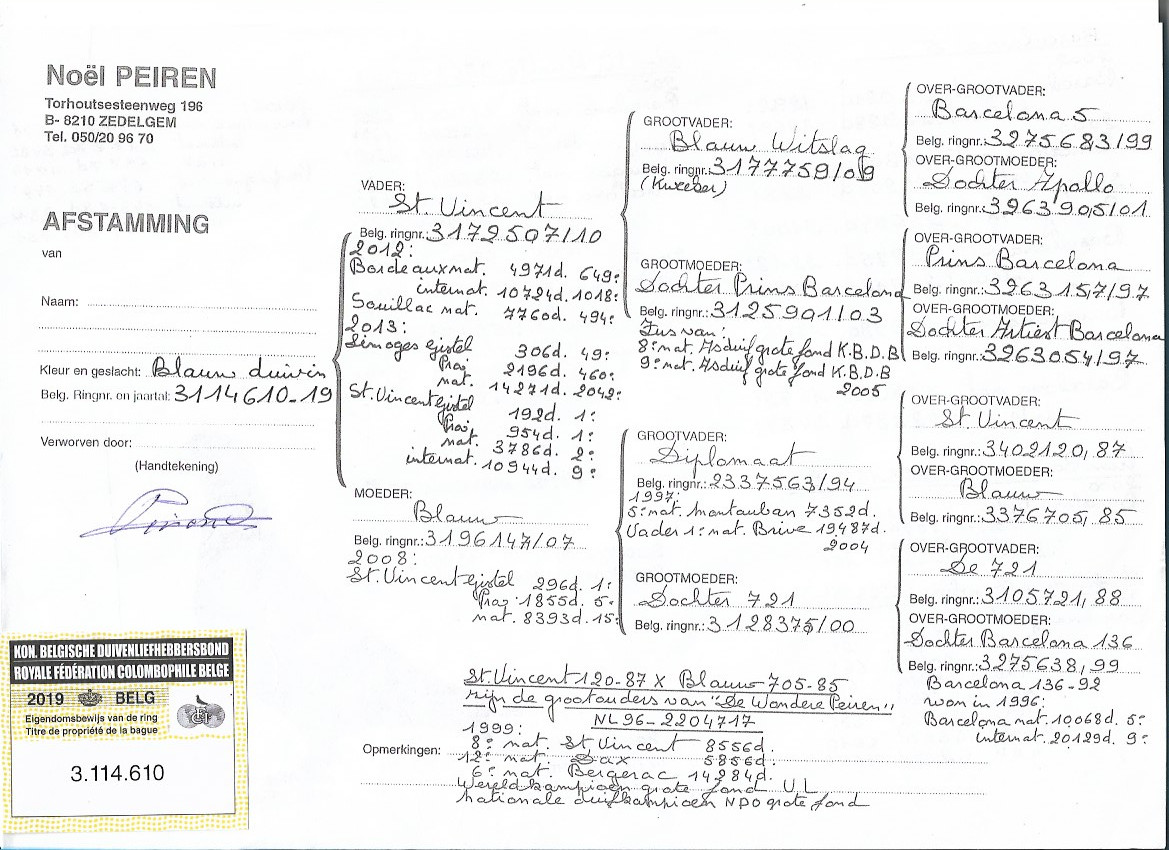 Noël PEIREN
Torhoutsesteenweg 196
B- 8210 ZEDELGEM
Tel. 050/20 96 70
AFSTAMMING
van
Naam:
Kleur en geslacht: Blauw duivin
Belg. Ringnr. en jaartal: 3114610-19
Verworven door:
(Handtekening)
KON. BELGISCHE DUIVENLIEFHEBBERSBOND
ROYALE FÉDÉRATION COLOMBOPHILE BELGE
2019 BELG
Eigendomsbewijs van de ring
Titre de propriété de la bague
3.114.610
VADER:
St. Vincent
Belg. ringnr.: 3172507/10
2012:
Bordeaux nat. 4971d. 649:
internat. 10724d. 1018:
Souillac nat. 7760d. 494:
2013:
Limoges Gistel 306d. 49:
Prov. 2196d. 460:
nat. 14271d. 2042:
St. Vincent Gistel 192d. 1:
Prov. 954d. 1:
nat. 3786d. 2:
internat. 10944d. 9:
MOEDER:
Blauw
Belg. ringnr.: 3196147/07
2008:
St. Vincent Gistel 296d. 1:
Prov. 1855d. 5:
nat. 8393d. 15:
GROOTVADER:
Blauw Witslag
Belg. ringnr.: 3177759/09
(Kweker)
GROOTMOEDER:
Dochter Prins Barcelona
Belg. ringnr.: 3125901/03
Zus van:
8: nat. Asduif grote fond K.B.D.B
9: nat. Asduif grote fond K.B.D.B
2005
GROOTVADER:
Diplomaat
Belg. ringnr.: 2337563/94
1997:
5: nat. Montauban 7352d.
Vader 1: nat. Brive 19487d.
2004
GROOTMOEDER:
Dochter 721
Belg. ringnr.: 3128375/00
OVER-GROOTVADER:
Barcelona 5
Belg. ringnr.: 3275683/99
OVER-GROOTMOEDER:
Dochter Apollo
Belg. ringnr.: 3263905/01
OVER-GROOTVADER:
Prins Barcelona
Belg. ringnr.: 3263157/97
OVER-GROOTMOEDER:
Dochter Artiest Barcelona
Belg. ringnr.: 3263054/97
OVER-GROOTVADER:
St. Vincent
Belg. ringnr.: 3402120/87
OVER-GROOTMOEDER:
Blauw
Belg. ringnr.: 3376705/85
OVER-GROOTVADER:
De 721
Belg. ringnr.: 3105721/88
OVER-GROOTMOEDER:
Dochter Barcelona 136
Belg. ringnr.: 3275638/99
Barcelona 136-92
won in 1996:
Barcelona nat. 10068d. 5:
internat. 20129d. 9:
St. Vincent 120-87 x Blauw 705-85
zijn de grootouders van "De Wondere Peiren"
NL 96-2204717
1999:
8: nat. St Vincent 8556d.
Opmerkingen: 12: nat. Dax 5856d.
6: nat. Bergerac 14284d.
Wereldkampioen grote fond UL
nationale duifkampioen NPO grote fond